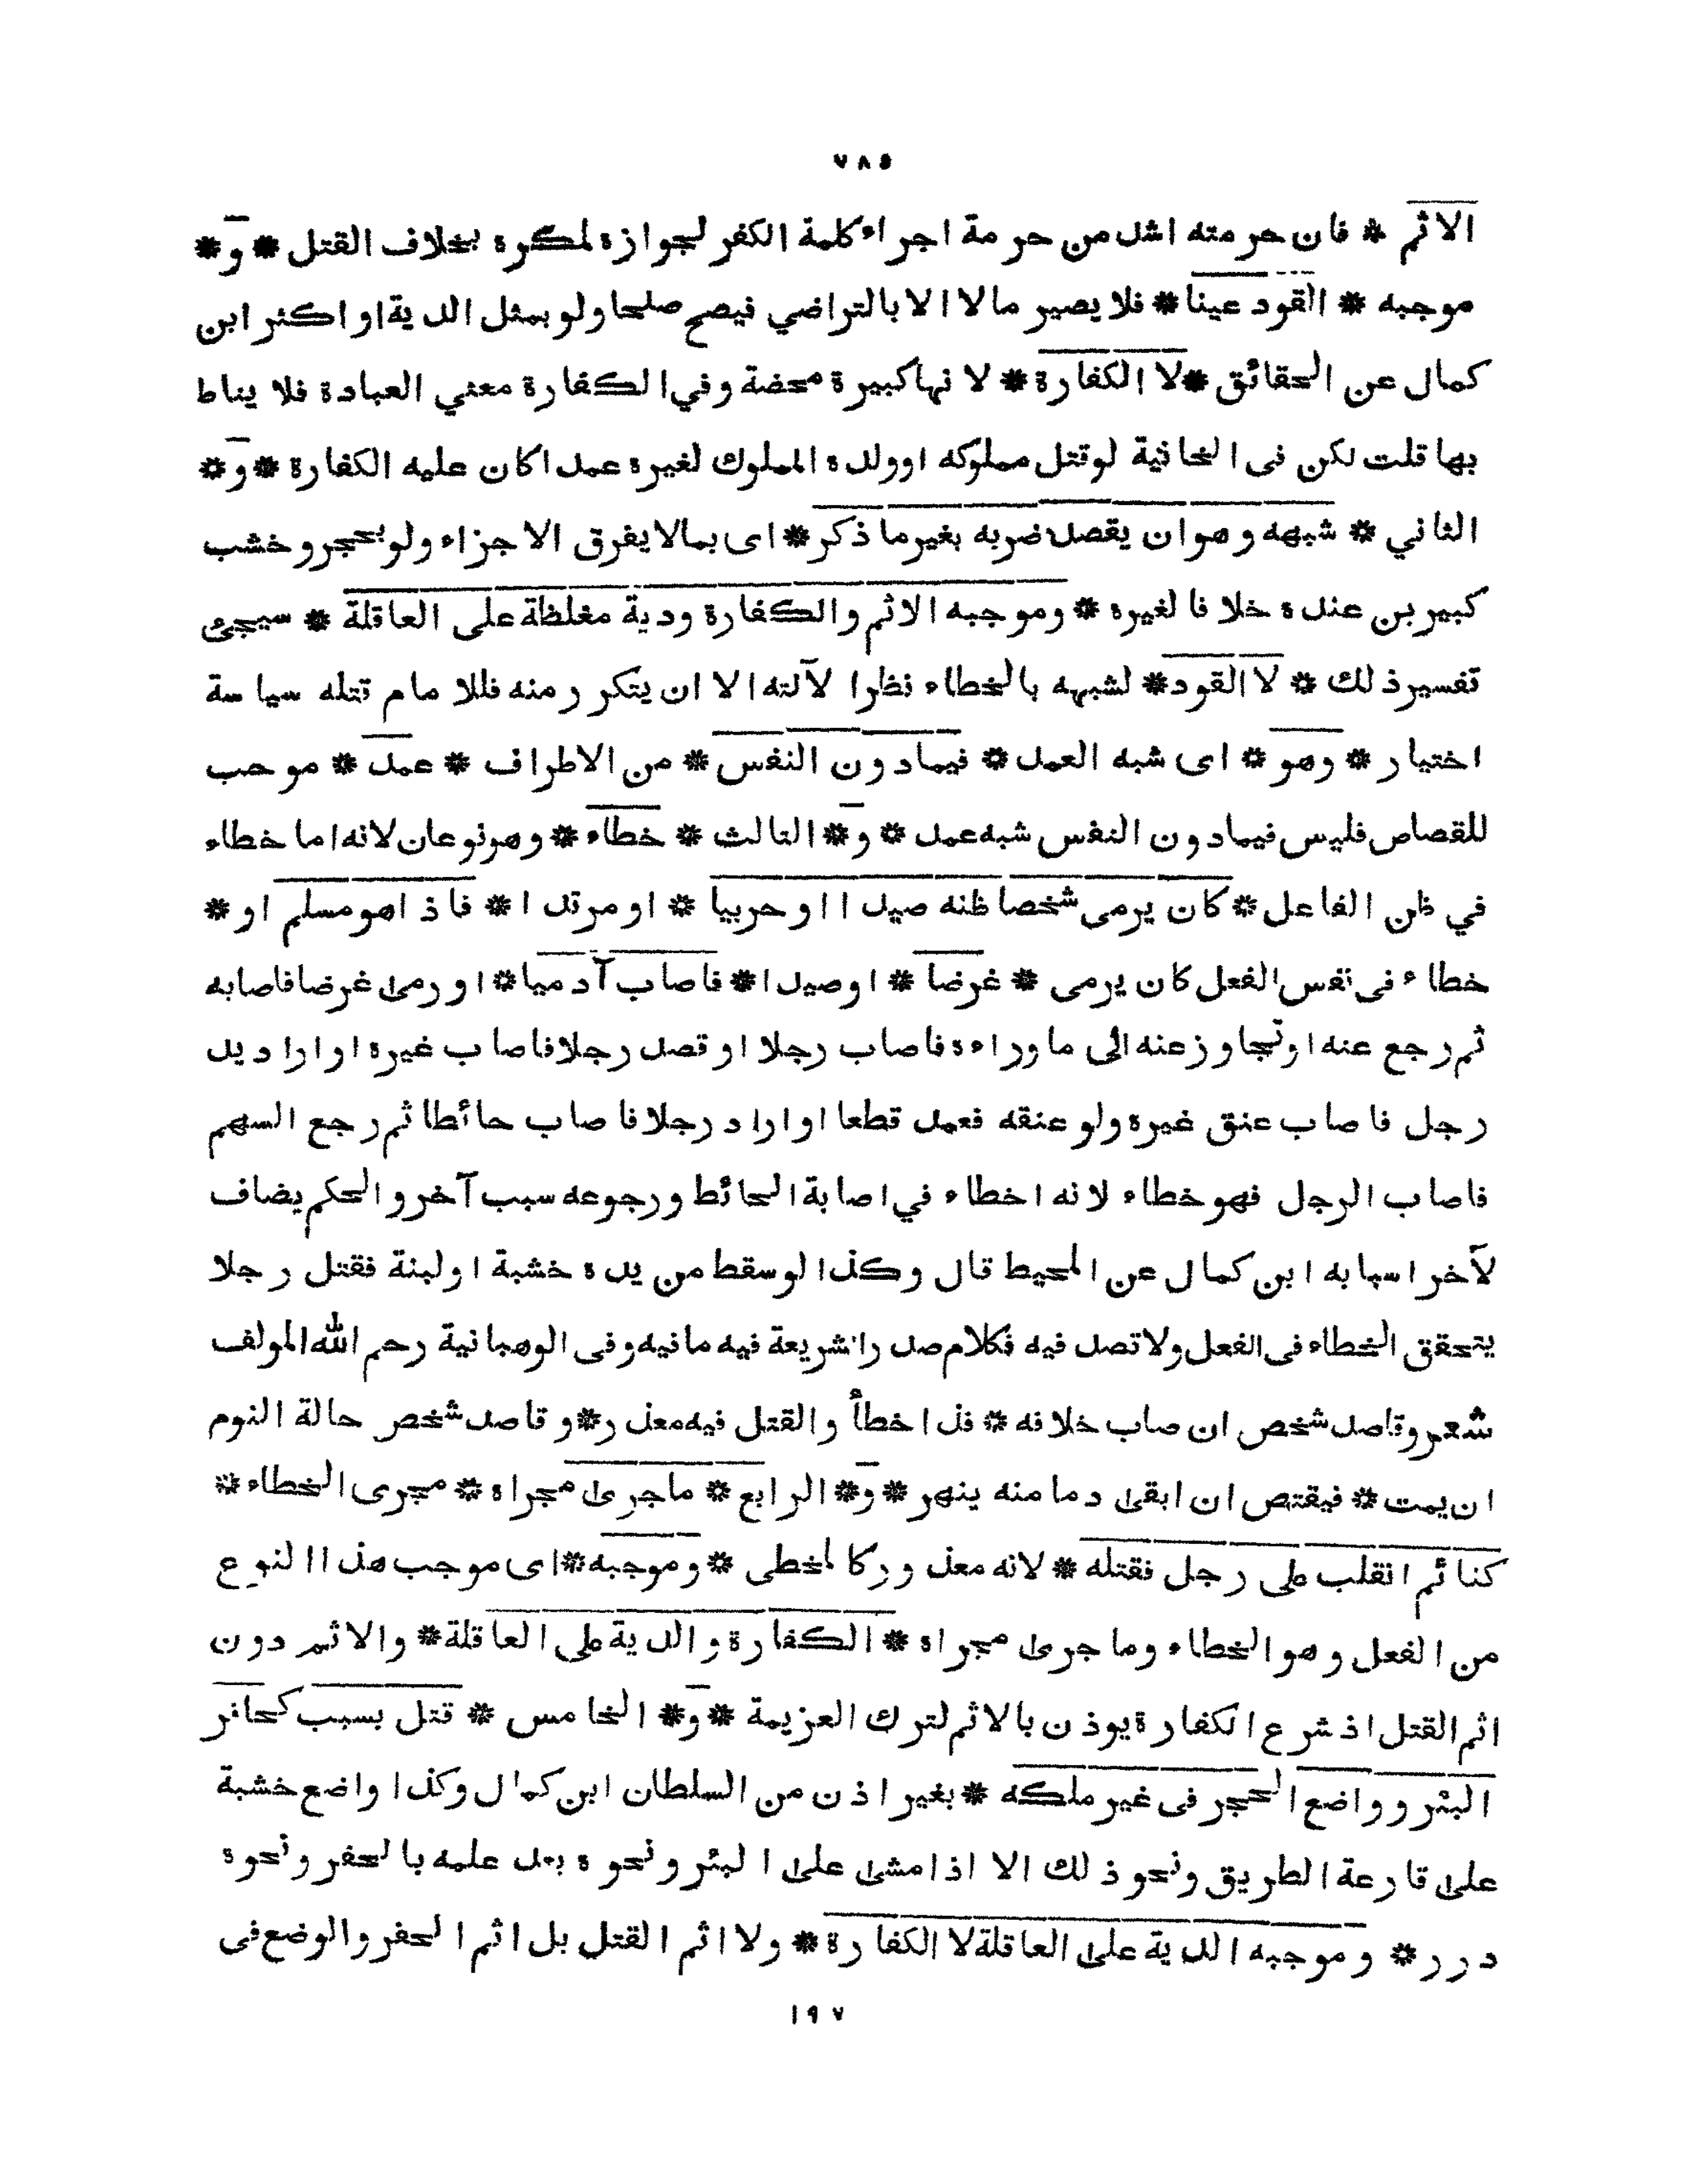 ٧٨٥
الاثم * فان حرمته اشد من حرمة اجراء كلمة الكفر لجوازه لمكره بخلاف القتل * و *
موجبه * القود عينا * فلا يصير مالا الا بالتراضي فيصح صلحا ولو بمثل الدية او اكثر ابن
كمال عن الحقائق * لا الكفارة * لا نها كبيرة محضة وفي الكفارة معني العبادة فلا يناط
بها قلت لكن فى الخانية لو قتل مملوكه او ولده المملوك لغيره عمدا كان عليه الكفارة * و *
الثاني * شبهه وهو ان يقصد ضربه بغير ما ذكر * اى بما لا يفرق الاجزاء ولو بحجر و خشب
كبير بن عنده خلا فا لغيره * وموجبه الاثم والكفارة ودية مغلظة على العاقلة * سيجئ
تفسير ذلك * لا القود * لشبهه بالخطاء نظرا لآلته الا ان يتكرر منه فللا مام قتله سياسة
اختيار * وهو * اى شبه العمد * فيما دون النفس * من الاطراف * عمد * موحب
للقصاص فليس فيما دون النفس شبه عمد * و * الثالث * خطاء * وهو نوعان لانه اما خطاء
في ظن الفاعل * كان يرمى شخصا ظنه صيدا او حربيا * او مرتدا * فاذا هو مسلم او *
خطاء فى نفس الفعل كان يرمى * غرضا * او صيدا * فاصاب آدميا * او رمى غرضا فاصابه
ثم رجع عنه او تجاوز عنه الى ما وراءه فاصاب رجلا او قصد رجلا فاصاب غيره او اراد يد
رجل فاصاب عنق غيره ولو عنقه فعمد قطعا او اراد رجلا فاصاب حائطا ثم رجع السهم
فاصاب الرجل فهو خطاء لانه اخطاء في اصابة الحائط ورجوعه سبب آخر والحكم يضاف
لآخر اسبابه ابن كمال عن المحيط قال وكذا لو سقط من يده خشبة او لبنة فقتل رجلا
يتحقق الخطاء فى الفعل ولا قصد فيه فكلام صد رالشريعة فيه ما فيه وفى الوهبانية رحم الله المولف
شعر وقاصد شخص ان صاب خلافه * فذا خطأ والقتل فيه معذر * و قاصد شخص حالة النوم
ان يمت * فيقتص ان ابقى دما منه ينهر * و * الرابع * ما جرى مجراه * مجرى الخطاء *
كنائم انقلب على رجل فقتله * لانه معذور كالمخطى * وموجبه * اى موجب هذا النوع
من الفعل وهو الخطاء وما جرى مجراه * الكفارة والدية على العاقلة * والاثم دون
اثم القتل اذ شرع الكفارة يوذن بالاثم لترك العزيمة * و * الخامس * قتل بسبب كحافر
البئر وواضع الحجر فى غير ملكه * بغير اذن من السلطان ابن كمال وكذا واضع خشبة
على قارعة الطريق ونحو ذلك الا اذا مشى على البئر ونحوه بعد علمه بالحفر ونحوه
درر * وموجبه الدية على العاقلة لا الكفارة * ولا اثم القتل بل اثم الحفر والوضع فى
١٩٧